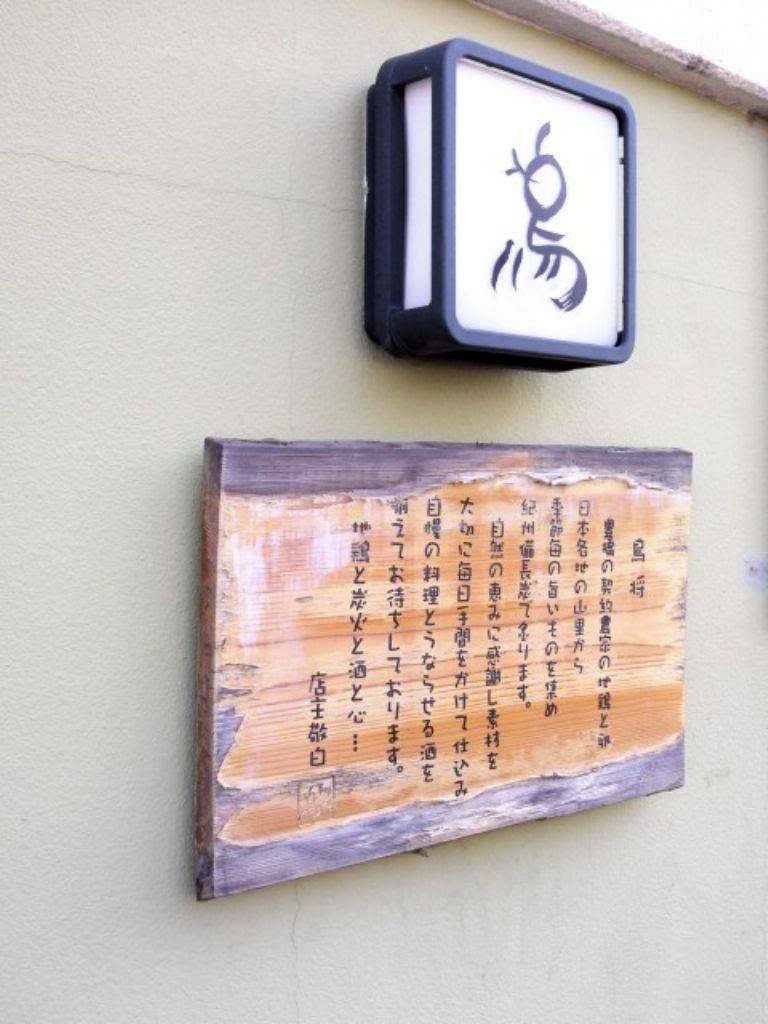 鳥
鳥将
豊場の契約農家の地鶏と卵
日本各地の山里から
季節毎の旨いものを集め
紀州備長炭で炙ります。
自然の恵みに感謝し素材を
大切に毎日手間をかけて仕込み
自慢の料理とうならせる酒を
揃えてお待ちしております。
地鶏と炭火と酒と心…
店主敬白